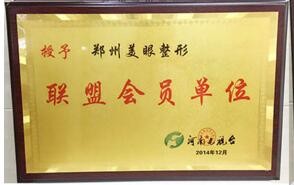 授予 郑州美眼整形
联盟会员单位
河南电视台
2014年12月